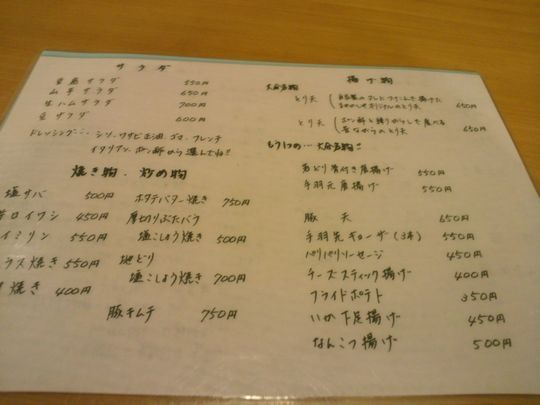 サラダ
豆腐サラダ 550円
山芋サラダ 650円
生ハムサラダ 700円
豆サラダ 600円
ドレッシング… シソ、ワサビ正油、ゴマ、フレンチ
イタリアン、ポン酢から選んでね!!
焼き物・炒め物
塩サバ 500円
イワシ 450円
ミリン 550円
ラス焼き 550円
焼き 400円
ホタテバター焼き 750円
厚切りぶたバラ
塩こしょう焼き 500円
地どり
塩こしょう焼き 700円
豚キムチ 750円
揚げ物
とり天 650円
とり天 ポン酢と練りがらしで食べる
昔ながらのとり天 650円
もう1つの…大分名物!!
若どり骨付き唐揚げ 550円
手羽元唐揚げ 550円
豚天 650円
手羽先ギョーザ(3本) 550円
パリパリソーセージ 450円
チーズスティック揚げ 400円
フライドポテト 350円
いか下足揚げ 450円
なんこつ揚げ 500円